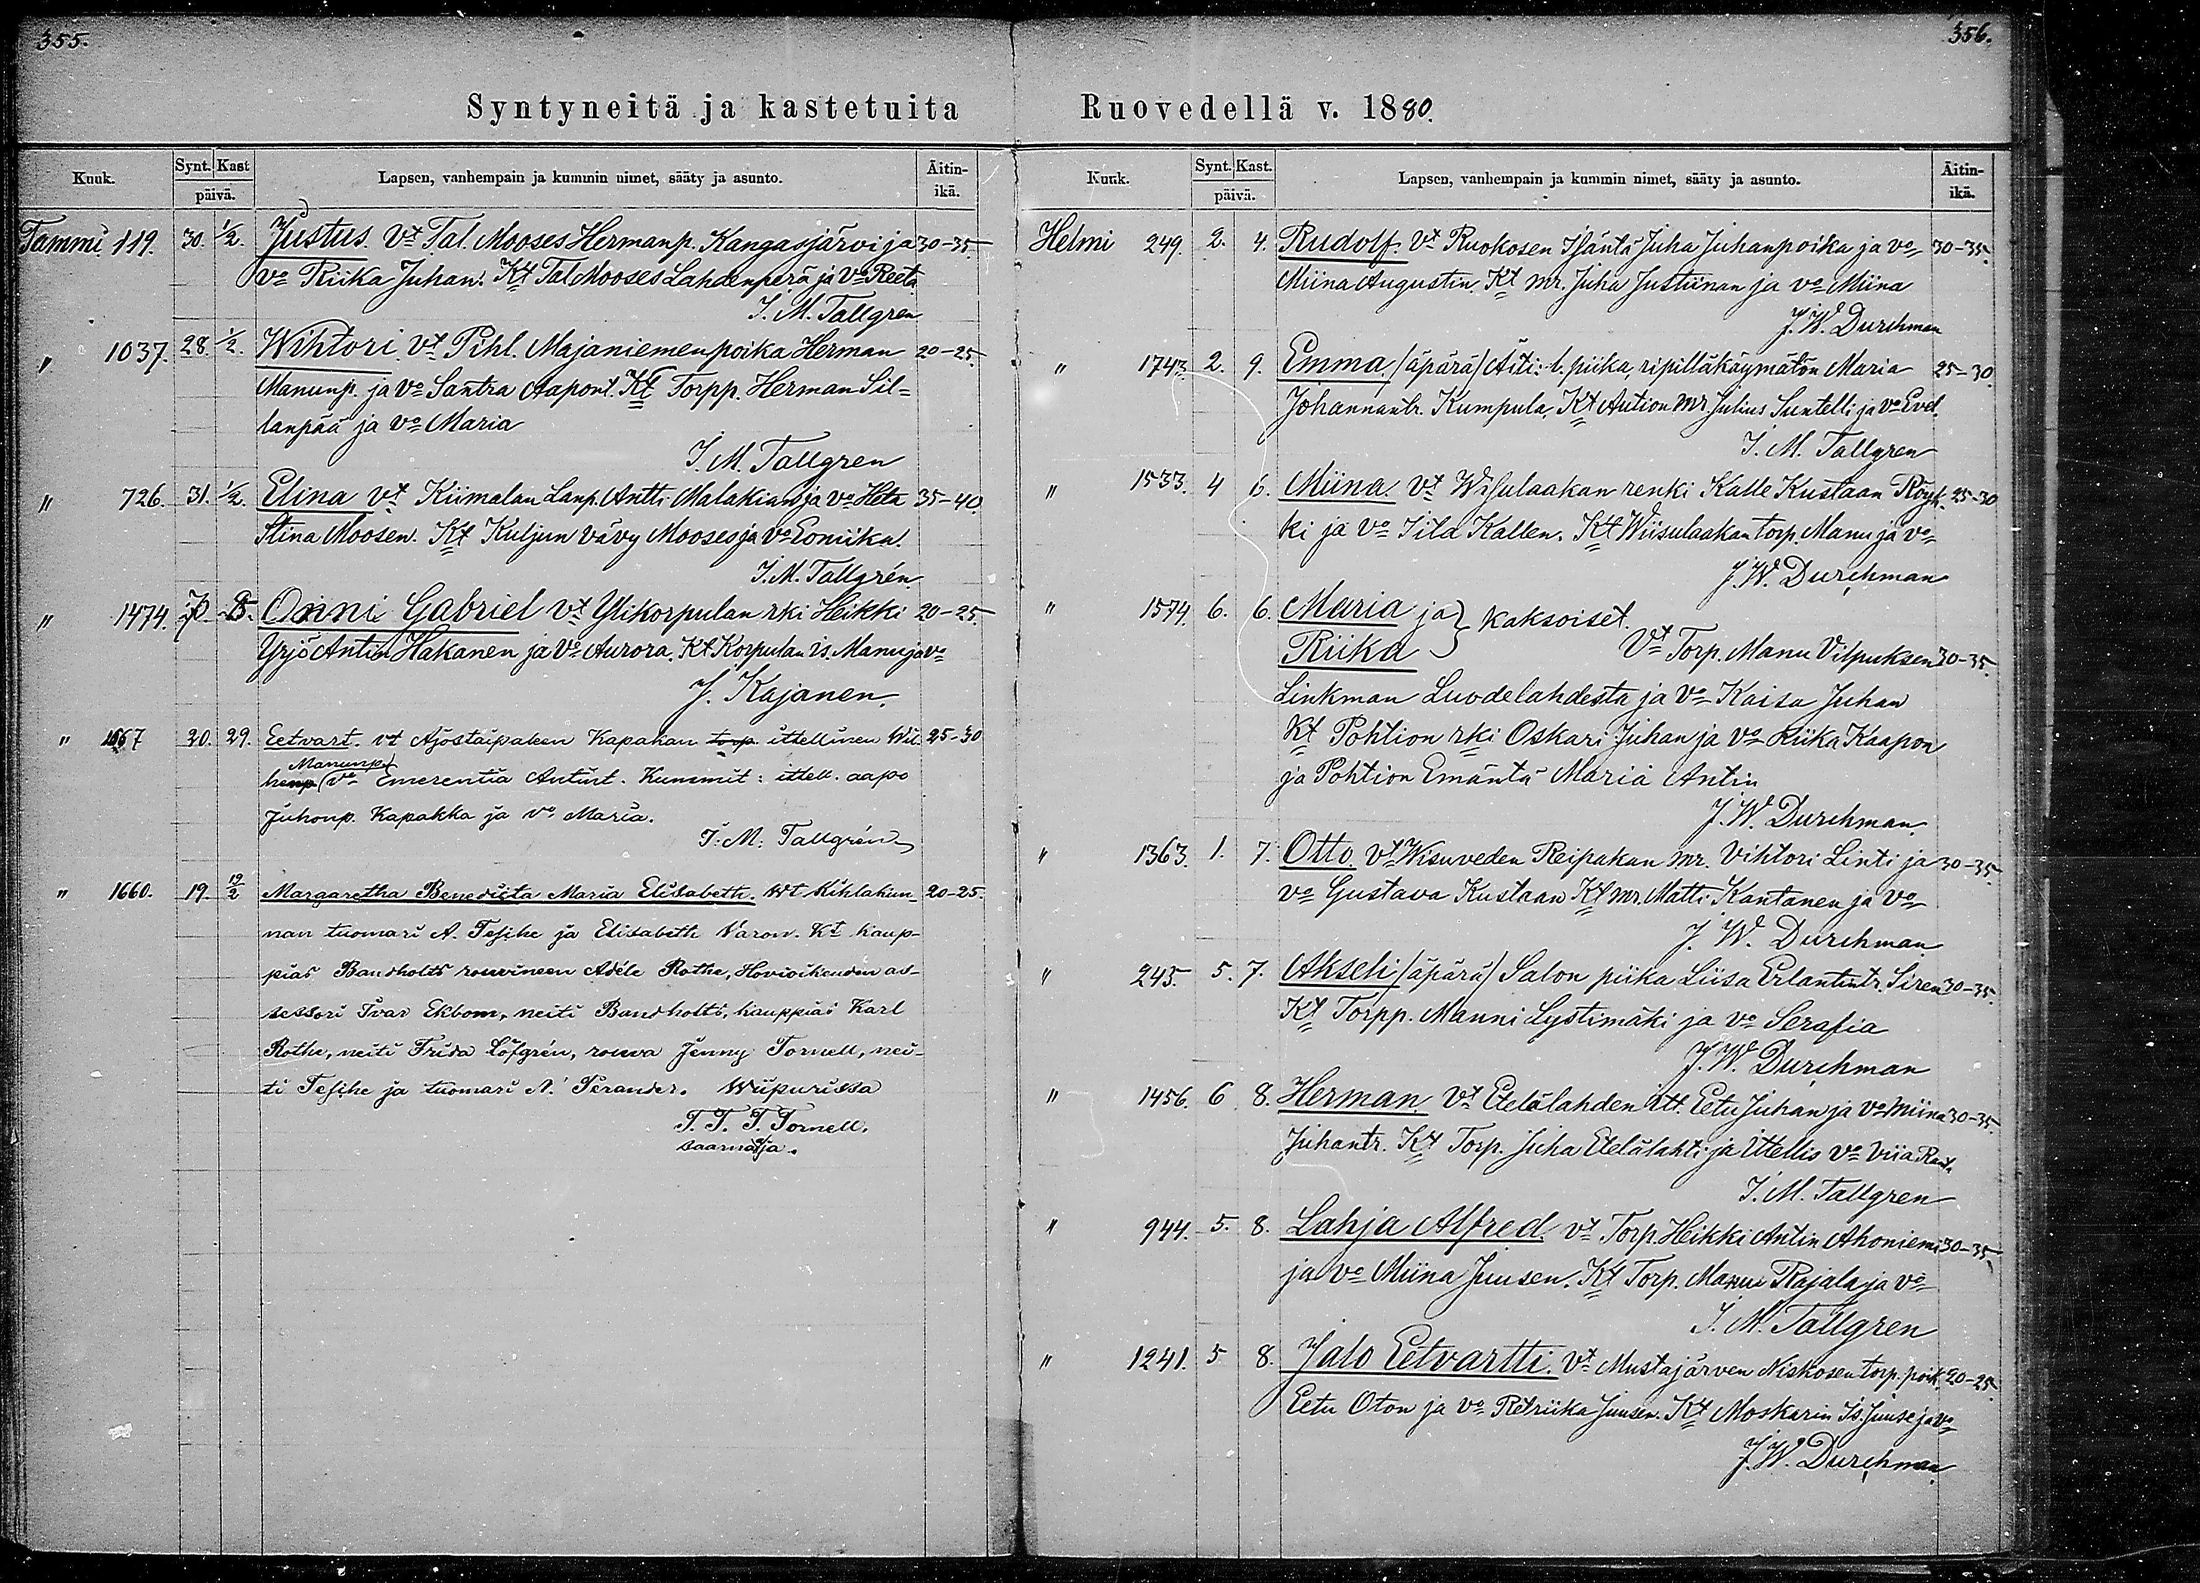 355.
Syntyneitä ja kastetuita
Kuuk.
Synt. Kast
päivä.
Lapsen, vanhempain ja kummin nimet, sääty ja asunto.
Äitin-
ikä.
Tammi. 119. 30. 1/2. Justus. Vt Tal. Mooses Hermanp. Kangasjärvi ja 30-35
vo Riika Juhan. Kt Tal Mooses Lahdenperä ja Vo Reeta
I. M. Tallgren
" 1037. 28. 1/2. Wihtori Vt Pihl. Majaniemen poika Herman 20-25.
Manunp. ja vo Santra Aapont. Kt Torpp. Herman Sil-
lanpää ja vo Maria
I. M. Tallgren
" 726. 31. 1/2. Elina vt Kiimalan Lanp. Antti Malakians ja vo Heta 35-40
Stina Moosen. Kt Kuljun vävy Mooses ja vo Loviika.
I. M. Tallgrén
" 1474. Onni Gabriel vt Ylikorpulan rki Heikki 20-25.
Yrjö Antin Hakanen ja Vo Aurora. Kt Korpulan is. Manu ja vo
J. Kajanen.
" 1667 20. 29. Eetvart. vt Ajostaipaleen Kapakan torp ittellinen Wil 25-30
Manunp.
henp vo Emerentia Antint. Kummit: ittell. aapo
Juhonp. Kapakka ja vo Maria.
I: M: Tallgrén
" 1660. 19. 19/2 Margaretha Benedicta Maria Elisabeth. Wt Kihlakun- 20-25.
nan tuomari A. Tesche ja Elisabeth Varon. Kt kaup-
pias Bandholts rouvineen Adéle Rothe, Hovioikeuden as-
sessori Ivar Ekbom, neiti Bandholts, kauppias Karl
Rothe, neiti Frida Löfgrén, rouva Jenny Tornell, nei-
ti Tesche ja tuomari N. Perander. Wiipurissa
T. T. T. Tornell.
saarnaaja.
356.
Ruovedellä v. 1880.
Kuuk.
Synt. Kast.
päivä.
Lapsen, vanhempain ja kummin nimet, sääty ja asunto.
Äitin-
ikä.
Helmi 249. 2. 4. Rudolf. Vt Ruokosen Isäntä Juha Juhanpoika ja vo 30-35.
Miina Augustin. Kt mr. Juha Justiinan ja vo Miina
J. W. Durchman
" 1743. 2. 9. Emma. (äpärä) Äiti: t. piika, ripilläkäymätön Maria 25-30.
Johannantr. Kumpula. Kt Aution Mr Julius Suntelli ja vo Evel.
I. M. Tallgren
" 1533. 4 6. Miina. Vt Wisulaakan renki Kalle Kustaan Röyk- 25-30
ki ja vo Iita Kallen. Kt Wiisulaakan torp. Manu ja vo
J. W. Durchman
" 1574. 6. 6. Maria ja } kaksoiset.
Riika Vt Torp. Manu Vilpuksen 30-35.
Linkman Luodelahdesta ja vo Kaisa Juhan
Kt Pohtion rki Oskari Juhan ja vo Riika Kaapon
ja Pohtion Emäntä Maria Antin
J. W. Durchman
" 1363. 1. 7. Otto. Vt Wisuveden Reipakan mr. Vihtori Linti ja 30-35.
vo Gustava Kustaan Kt mr. Matti Kantanen ja vo
J. W. Durchman
" 245. 5. 7. Akseli (äpärä) Salon piika Liisa Erlantintr. Siren 30-35.
Kt Torpp. Manni Lystimäki ja vo Serafia
J. W. Durchman
" 1456. 6 8. Herman. Vt Etelälahden itt. Eetu Juhan ja vo Miina 30-35.
Juhantr. Kt Torp. Juha Etelälahti ja ittellis vo Viia
I. M. Tallgren
" 944. 5. 8. Lahja Alfred. vt Torp. Heikki Antin Ahoniemi 30-35
ja vo Miina Juusen. Kt Torp. Manu Rajala ja vo
I. M. Tallgren
" 1241. 5 8. Jalo Eetvartti. Vt Mustajärven Niskosen torp. poik. 20-25.
Eetu Oton ja vo Retriika Juusen. Kt Moskarin Is. Juuse ja vo
J. W. Durchman